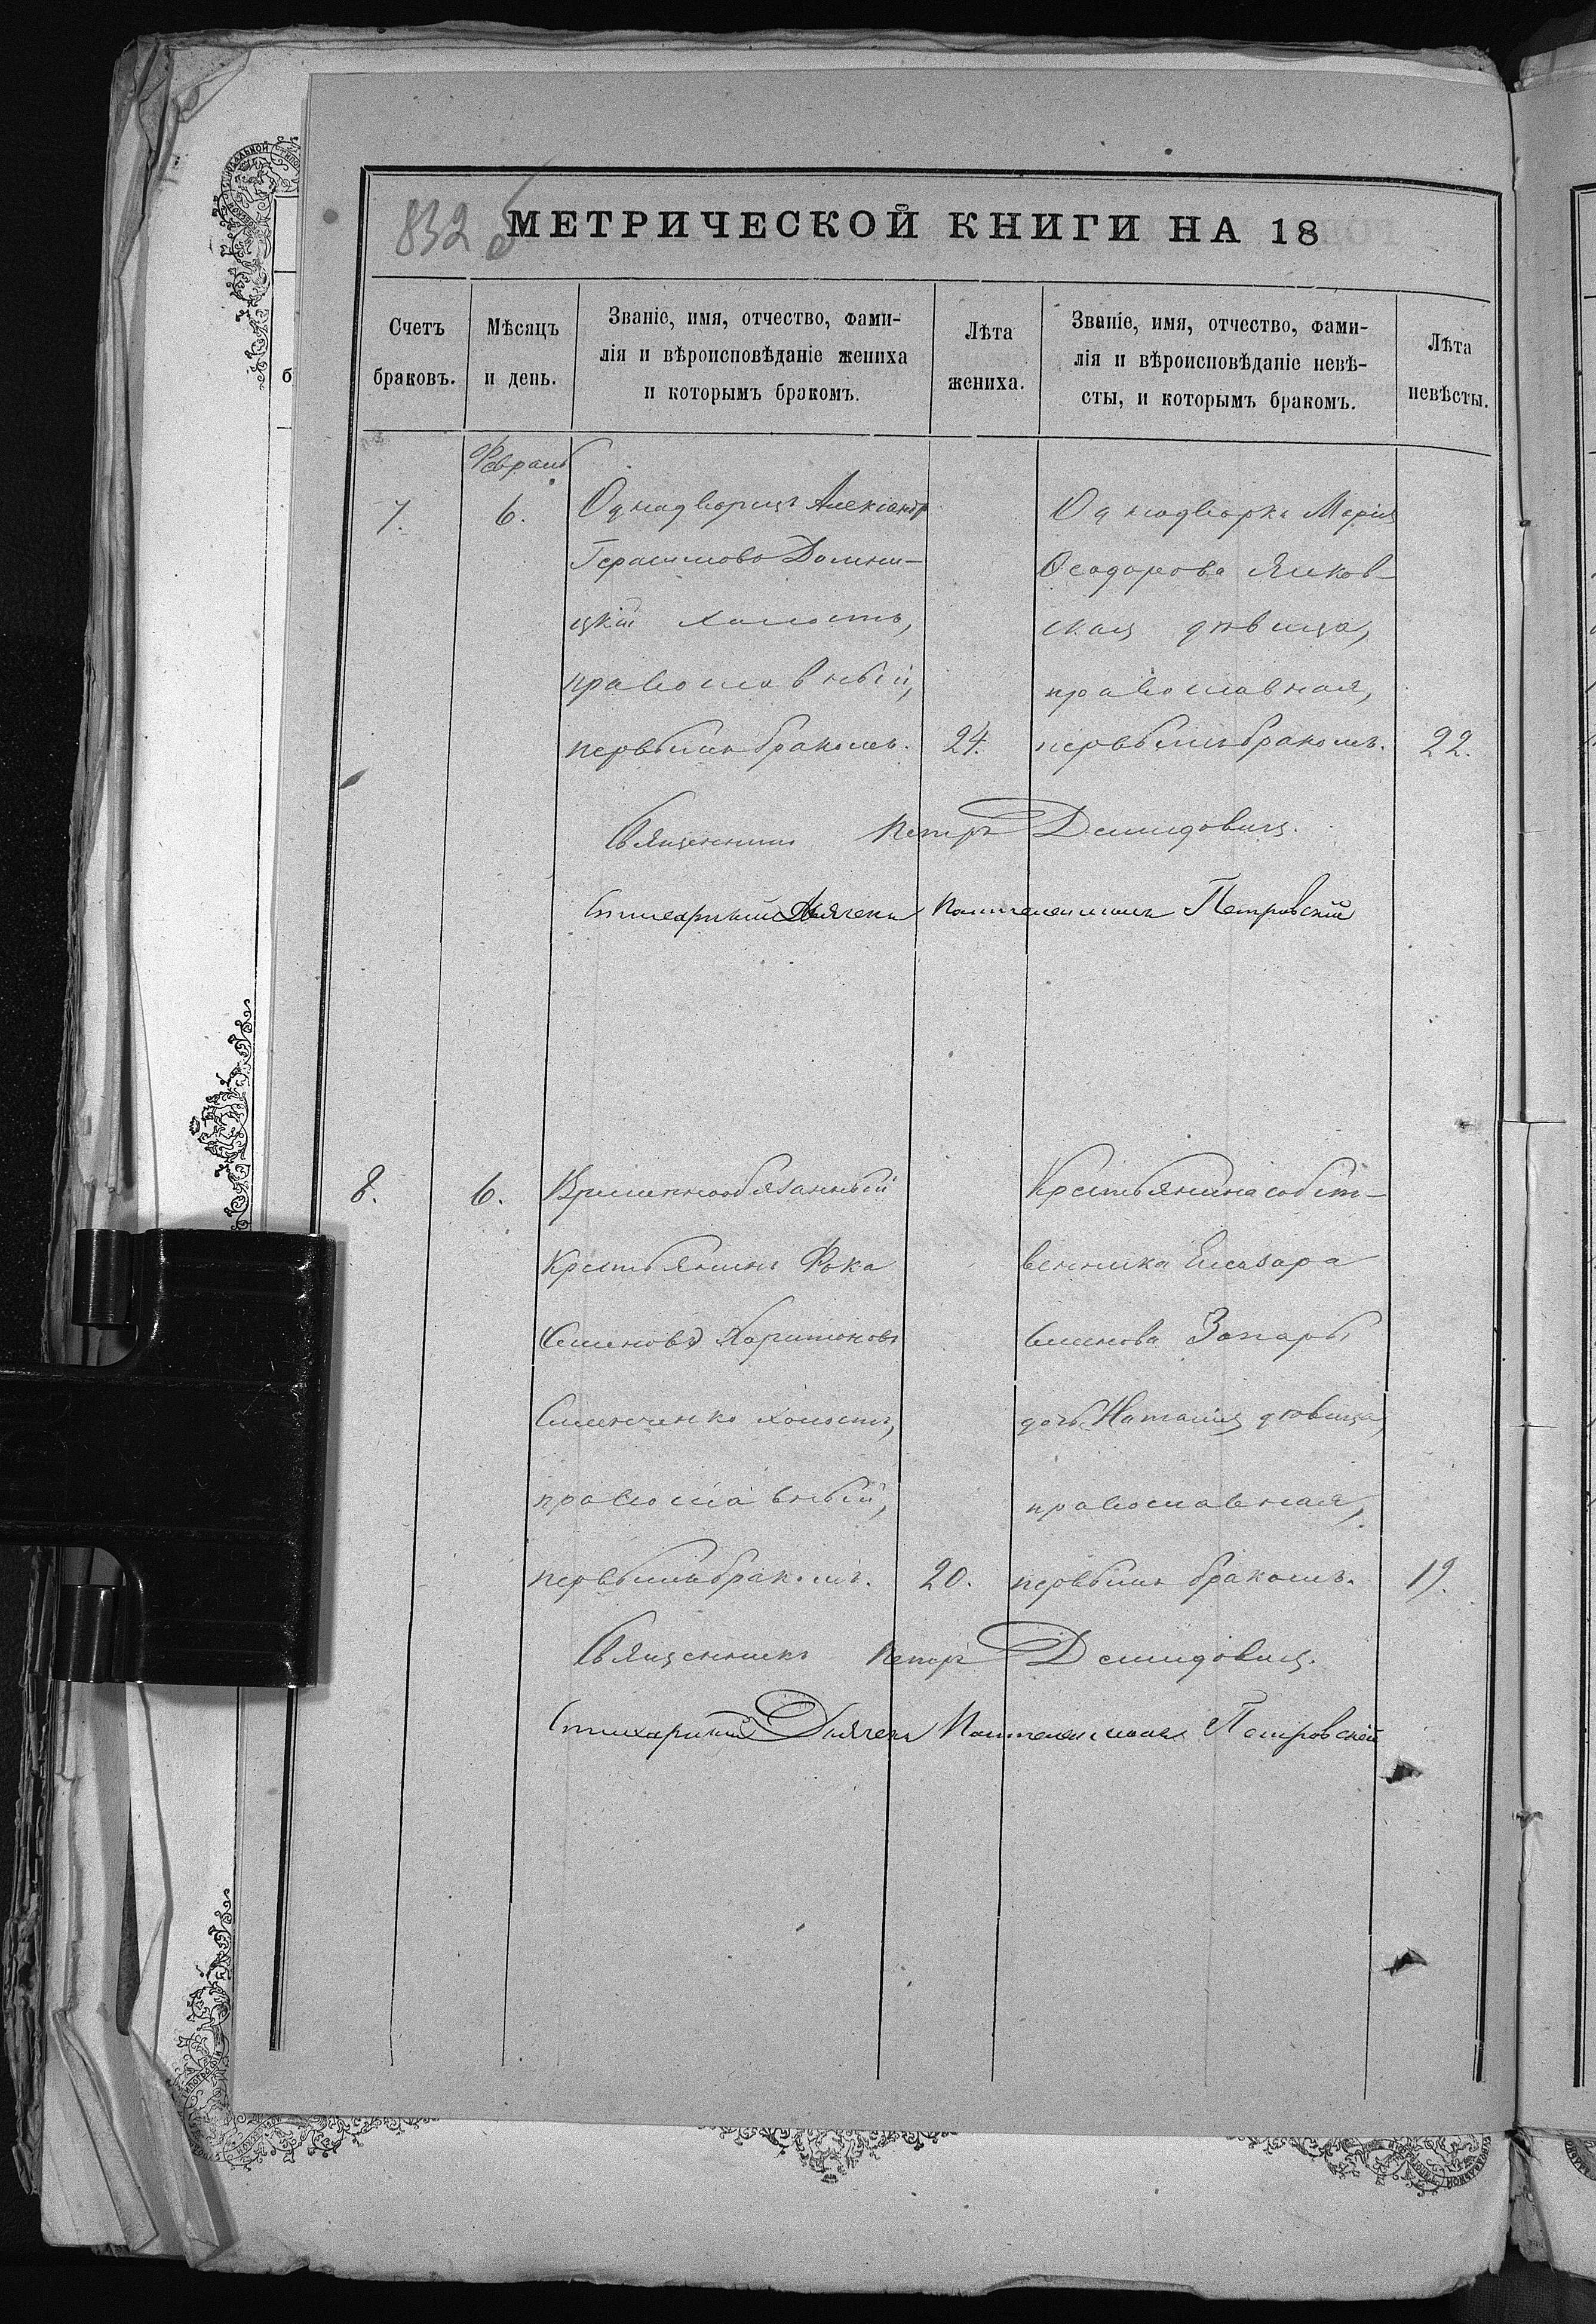 832 б
МЕТРИЧЕСКОЙ КНИГИ НА 18
Счетъ браковъ.
Мѣсяцъ и день.
Званіе, имя, отчество, фами-
лія и вѣроисповѣданіе жениха
и которымъ бракомъ.
Лѣта жениха.
Званіе, имя, отчество, фами-
лія и вѣроисповѣданіе невѣ-
сты, и которымъ бракомъ.
Лѣта невѣсты.
Февраль
7.
6.
Однодворецъ Александръ
Герасимовъ
цкій холостъ,
православный,
первымъ бракомъ.
24.
Однодворка Марія
Ѳеодорова Янков-
ская дѣвица,
православная,
первымъ бракомъ.
22.
Священникъ Петръ Демидовичъ.
Стихарный Дьячекъ Пантелеимонъ Петровскій
8.
6.
Временнообязанный
крестьянинъ Фока
Семеновъ Харитоновъ
Семенченко холостъ,
православный,
первымъ бракомъ.
20.
Крестьянина собст-
венника Елеазара
Семенова
дочь Наталія дѣвица,
православная,
первымъ бракомъ.
19.
Священникъ Петръ Демидовичъ.
Стихарный Дьячекъ Пантелеимонъ Петровскій